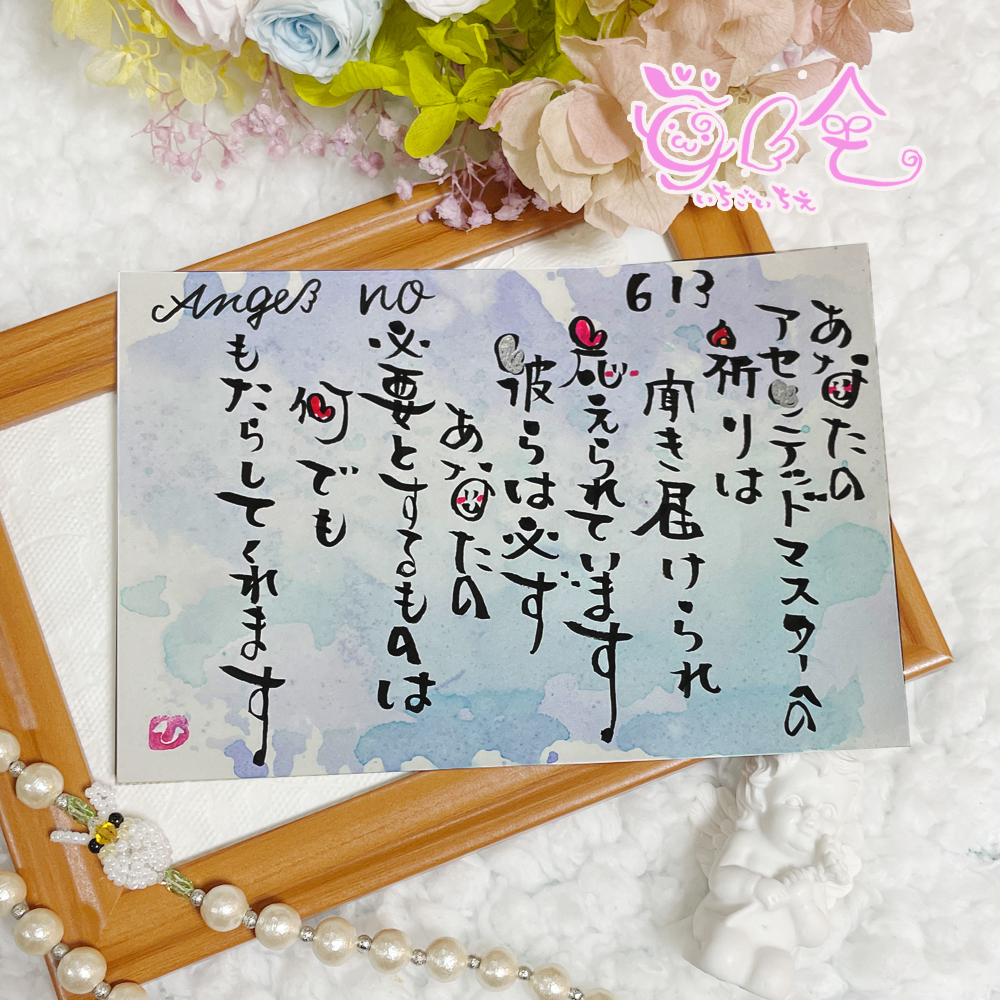 Angel no 613
あなたの
アセンデッドマスターへの
祈りは
聞き届けられ
応えられています
彼らは必ず
あなたの
必要とするものは
何でも
もたらしてくれます
いちごいちえ